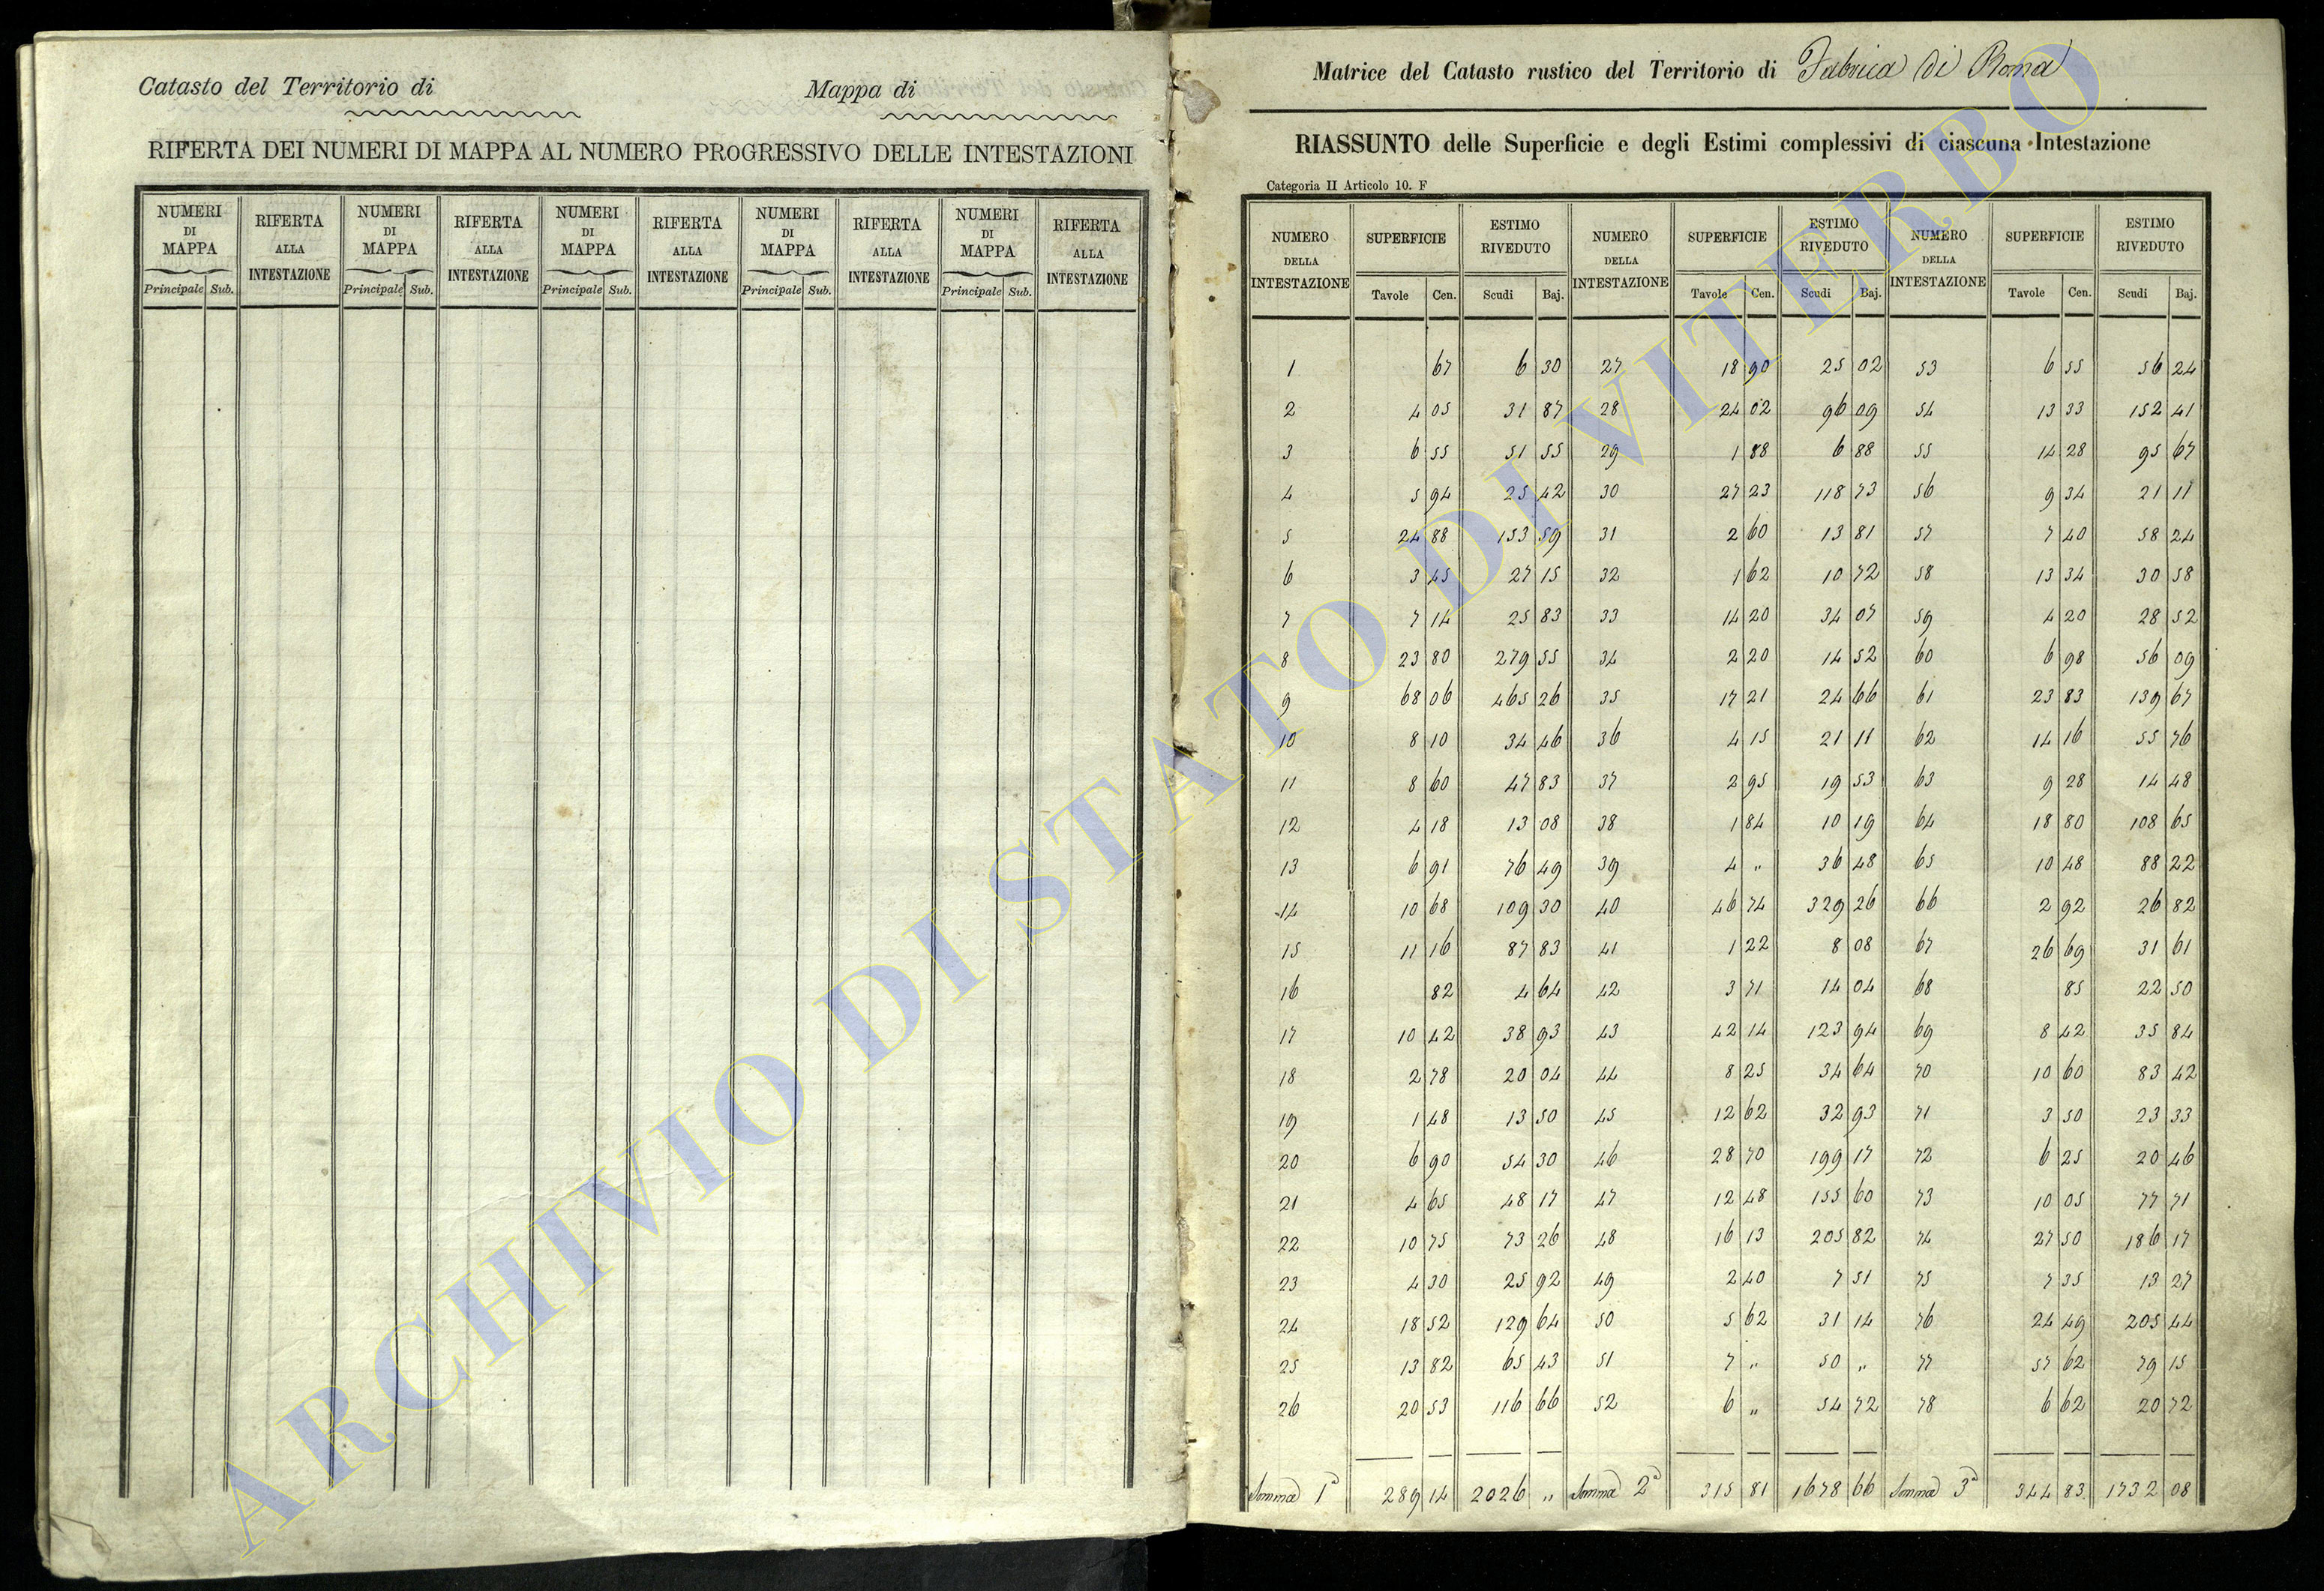 Catasto del Territorio di
Mappa di
RIFERTA DEI NUMERI DI MAPPA AL NUMERO PROGRESSIVO DELLE INTESTAZIONI
NUMERI DI MAPPA RIFERTA ALLA INTESTAZIONE NUMERI DI MAPPA RIFERTA ALLA INTESTAZIONE NUMERI DI MAPPA RIFERTA ALLA INTESTAZIONE NUMERI DI MAPPA RIFERTA ALLA INTESTAZIONE NUMERI DI MAPPA RIFERTA ALLA INTESTAZIONE
Principale Sub. Principale Sub. Principale Sub. Principale Sub. Principale Sub.
Matrice del Catasto rustico del Territorio di Fabrica di Roma
RIASSUNTO delle Superficie e degli Estimi complessivi di ciascuna Intestazione
Categoria II Articolo 10. F
NUMERO DELLA INTESTAZIONE SUPERFICIE ESTIMO RIVEDUTO NUMERO DELLA INTESTAZIONE SUPERFICIE ESTIMO RIVEDUTO NUMERO DELLA INTESTAZIONE SUPERFICIE ESTIMO RIVEDUTO
Tavole Cen. Scudi Baj. Tavole Cen. Scudi Baj. Tavole Cen. Scudi Baj.
1 67 6 30 27 18 90 25 02 53 6 55 56 24
2 4 05 31 87 28 24 02 96 09 54 13 33 152 41
3 6 55 51 55 29 1 88 6 88 55 14 28 95 67
4 5 94 25 42 30 27 23 118 73 56 9 34 21 11
5 24 88 153 59 31 2 60 13 81 57 7 40 58 24
6 3 45 27 15 32 1 62 10 72 58 13 34 30 58
7 7 14 25 83 33 14 20 34 07 59 4 20 28 52
8 23 80 279 55 34 2 20 14 52 60 6 98 56 09
9 68 06 465 26 35 17 21 24 66 61 23 83 139 67
10 8 10 34 46 36 4 15 21 11 62 14 16 55 76
11 8 60 47 83 37 2 95 19 53 63 9 28 14 48
12 4 18 13 08 38 1 84 10 19 64 18 80 108 65
13 6 91 76 49 39 4 " 36 48 65 10 48 88 22
14 10 68 109 30 40 46 74 329 26 66 2 92 26 82
15 11 16 87 83 41 1 22 8 08 67 26 69 31 61
16 82 4 64 42 3 71 14 04 68 85 22 50
17 10 42 38 93 43 42 14 123 94 69 8 42 35 84
18 2 78 20 04 44 8 25 34 64 70 10 60 83 42
19 1 48 13 50 45 12 62 32 93 71 3 50 23 33
20 6 90 54 30 46 28 70 199 17 72 6 25 20 46
21 4 65 48 17 47 12 48 155 60 73 10 05 77 71
22 10 75 73 26 48 16 13 205 82 74 27 50 186 17
23 4 30 25 92 49 2 40 7 51 75 7 35 13 27
24 18 52 129 64 50 5 62 31 14 76 24 49 205 44
25 13 82 65 43 51 7 " 50 " 77 57 62 79 15
26 20 53 116 66 52 6 " 54 72 78 6 62 20 72
Somma 1ª 289 14 2026 " Somma 2ª 315 81 1678 66 Somma 3ª 344 83 1732 08
ARCHIVIO DI STATO DI VITERBO